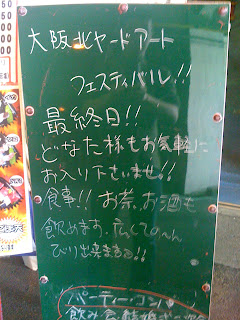 大阪北ヤードアート
フェスティバル!!
最終日!!
どなた様もお気軽に
お入り下さいませ!!
食事!! お茶、お酒も
飲めます。広くての〜ん
びり出来ますよ!!
パーティー・コンパ